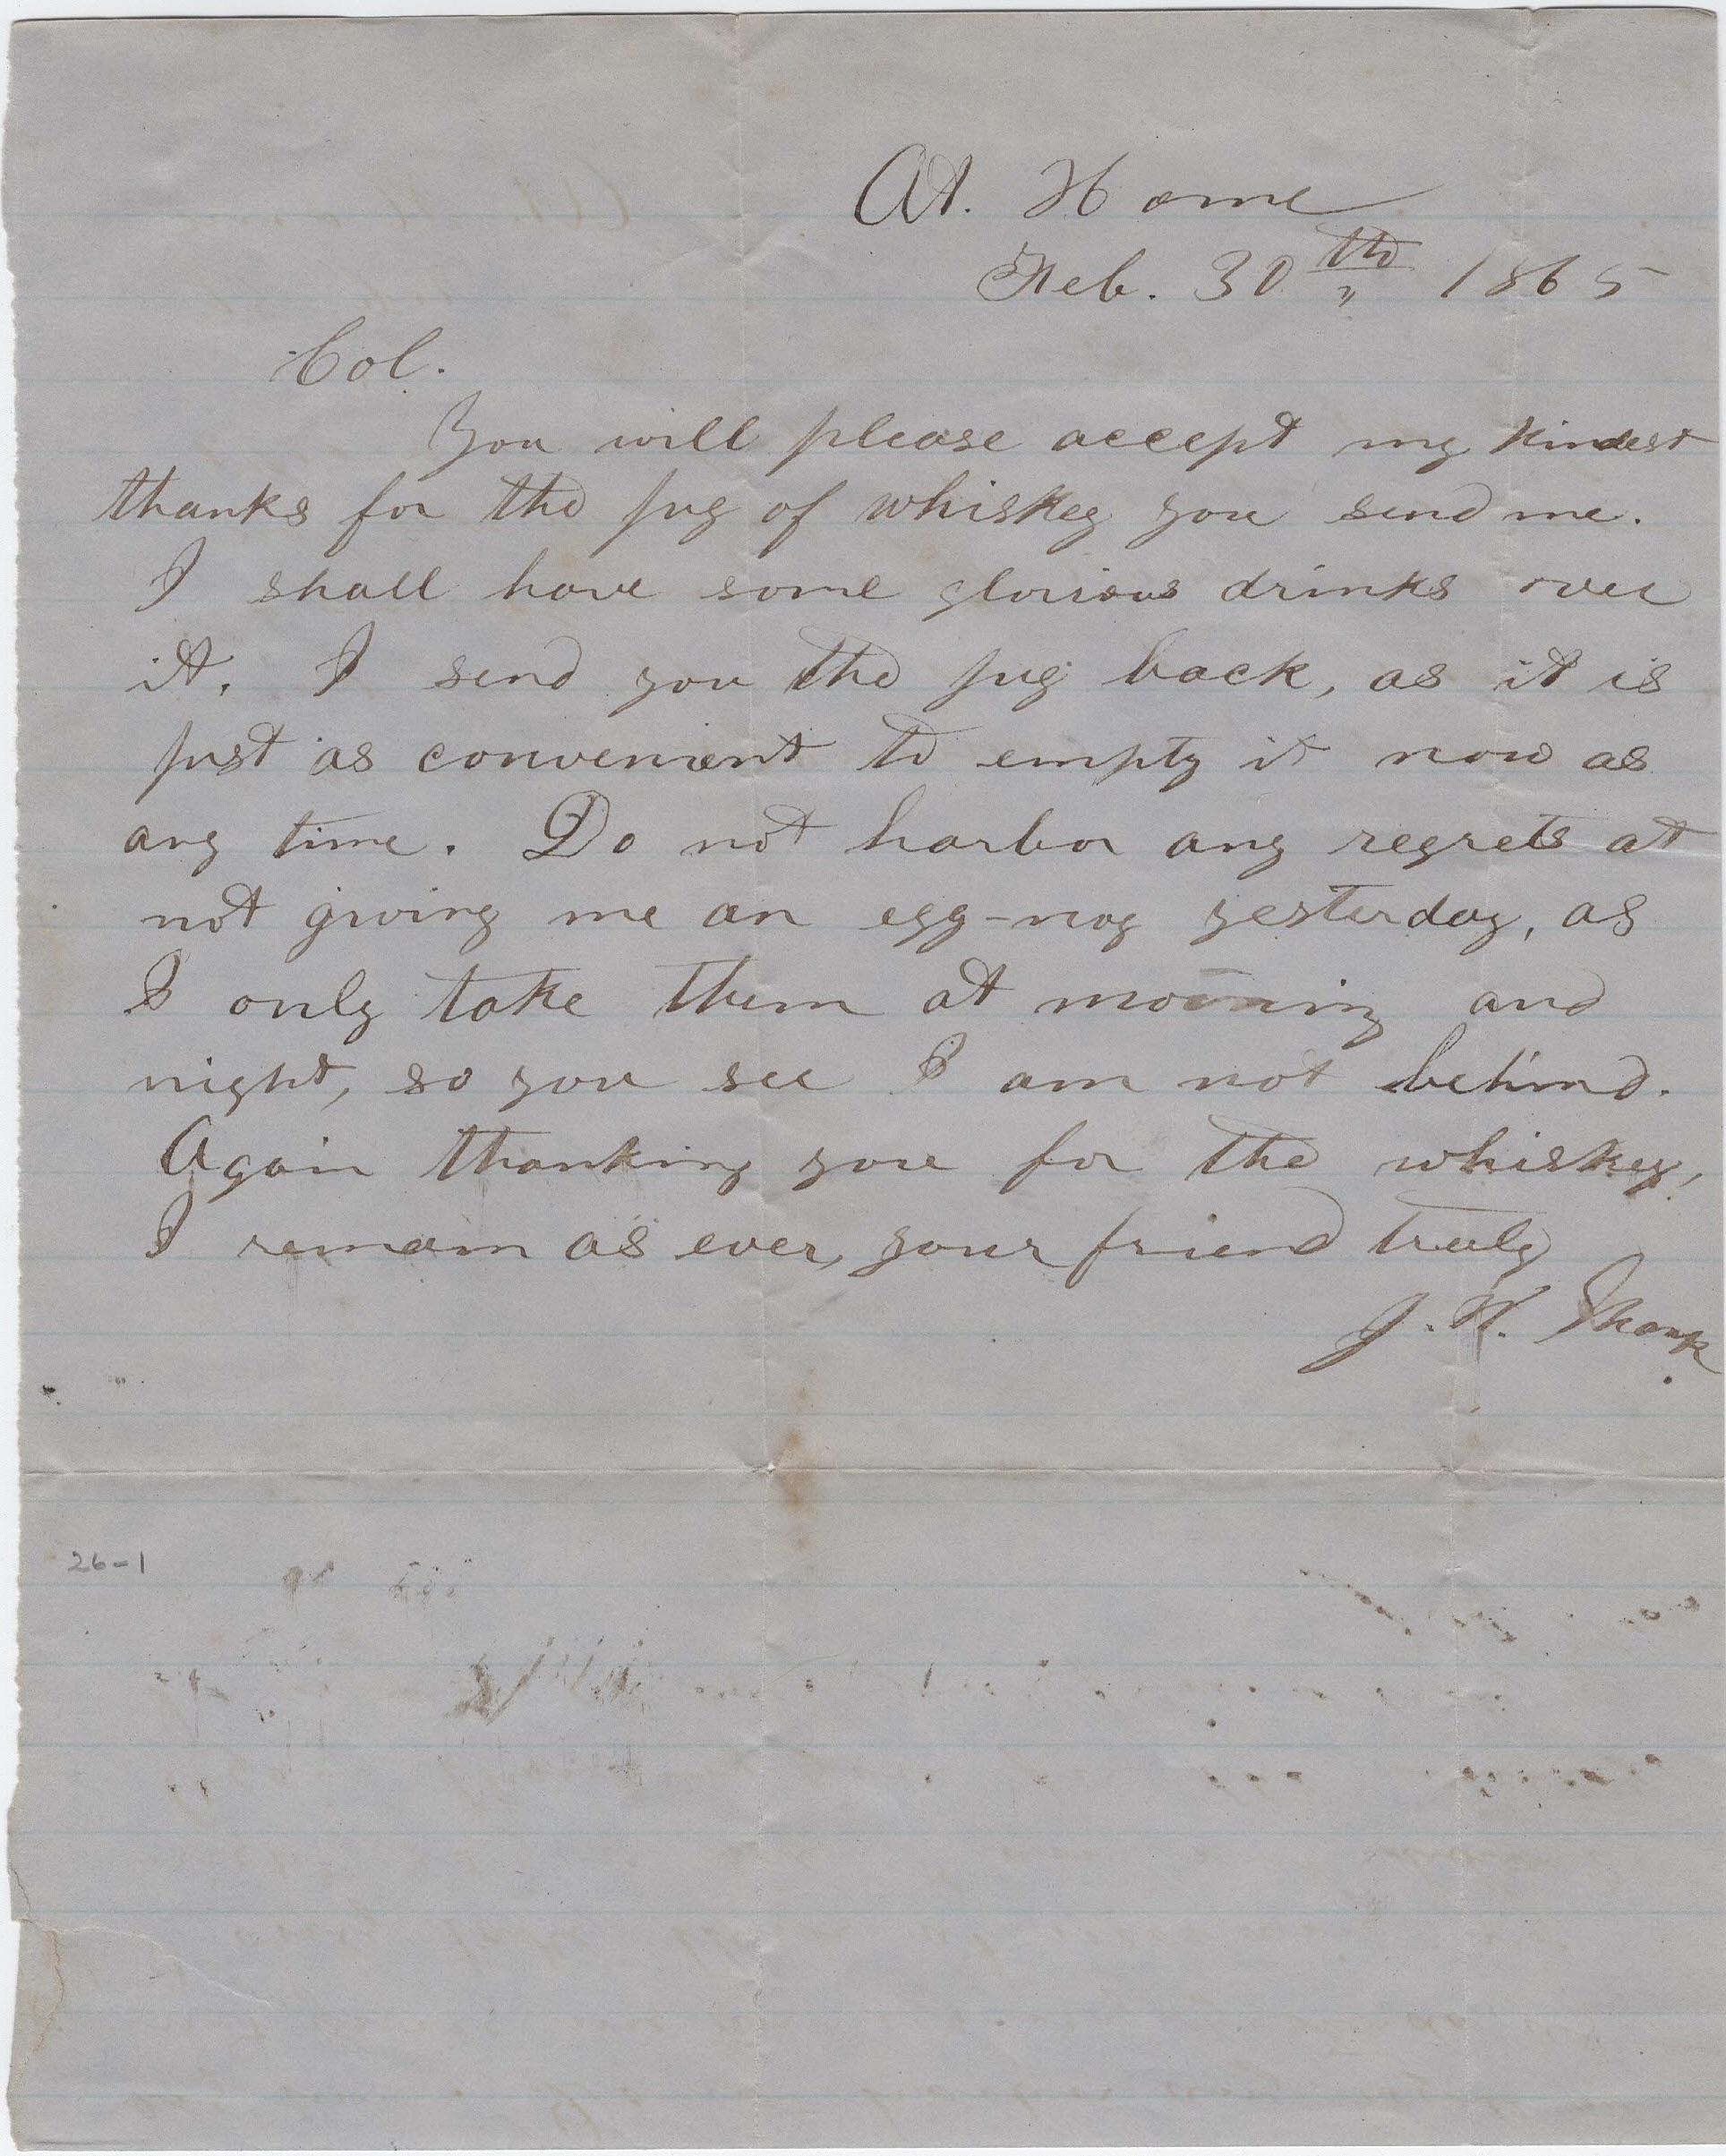 At. Home
Feb. 30th 1865
Col.
You will please accept my kindest
thanks for the jug of whiskey you send me.
I shall have some glorious drinks over
it. I send you the jug back, as it is
just as convenient to empty it now as
any time. Do not harbor any regrets at
not giving me an egg-nog yesterday, as
I only take them at morning and
night, so you see I am not behind.
Again thanking you for the whiskey,
I remain as ever, your friend truly
J. H.
26-1